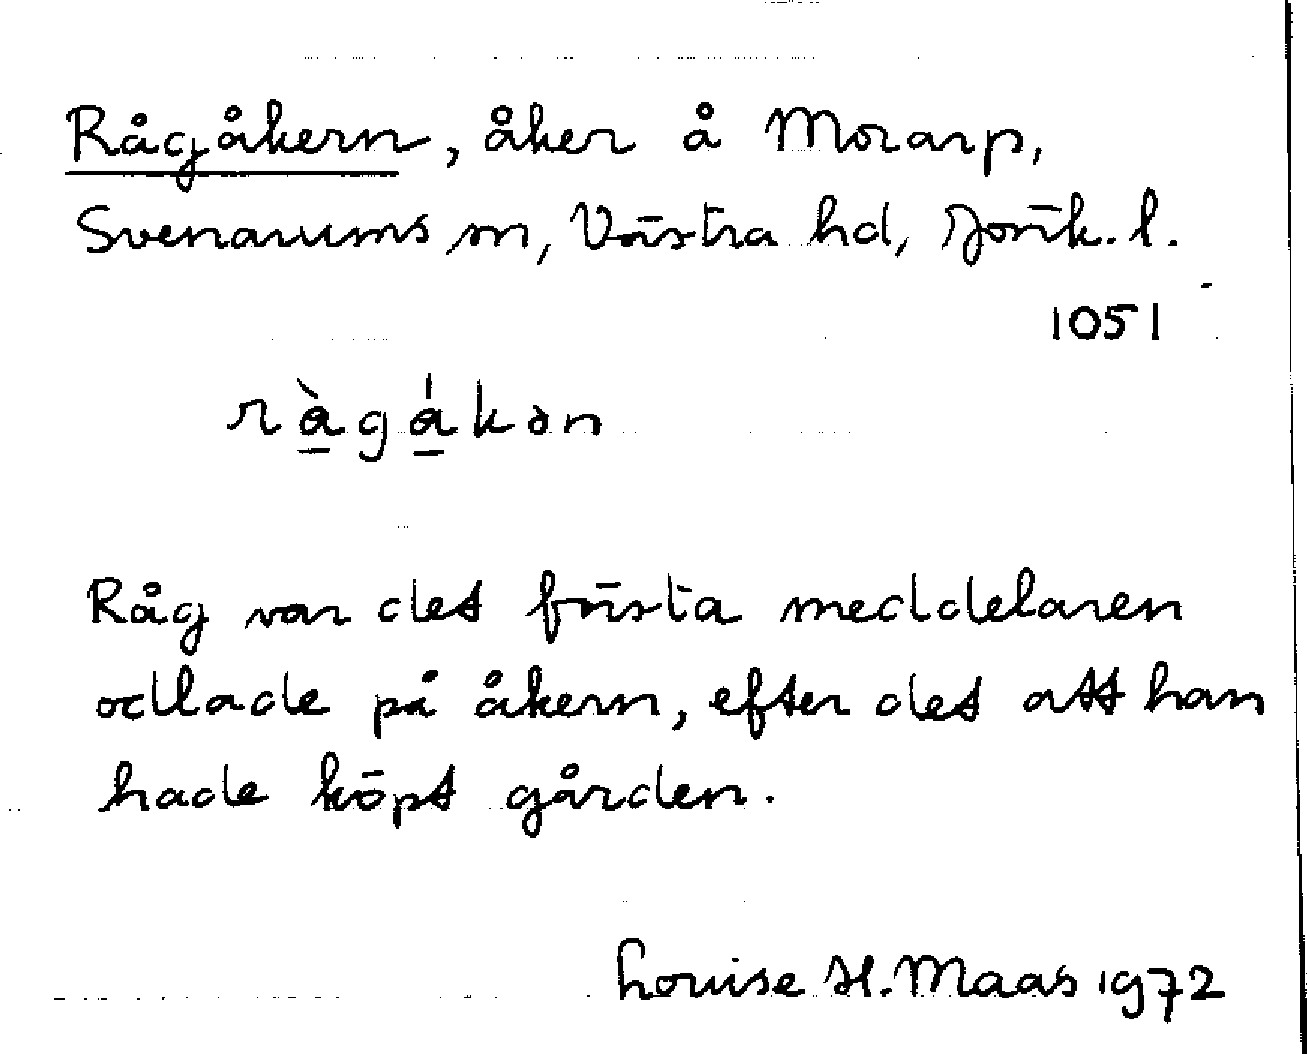 Rågåkern, åker å Morarp,
Svenarums sn, Västra hd, Jönk. l.
1051
ràgákən
Råg var det första meddelaren
odlade på åkern, efter det att han
hade köpt gården.
Louise H. Maas 1972